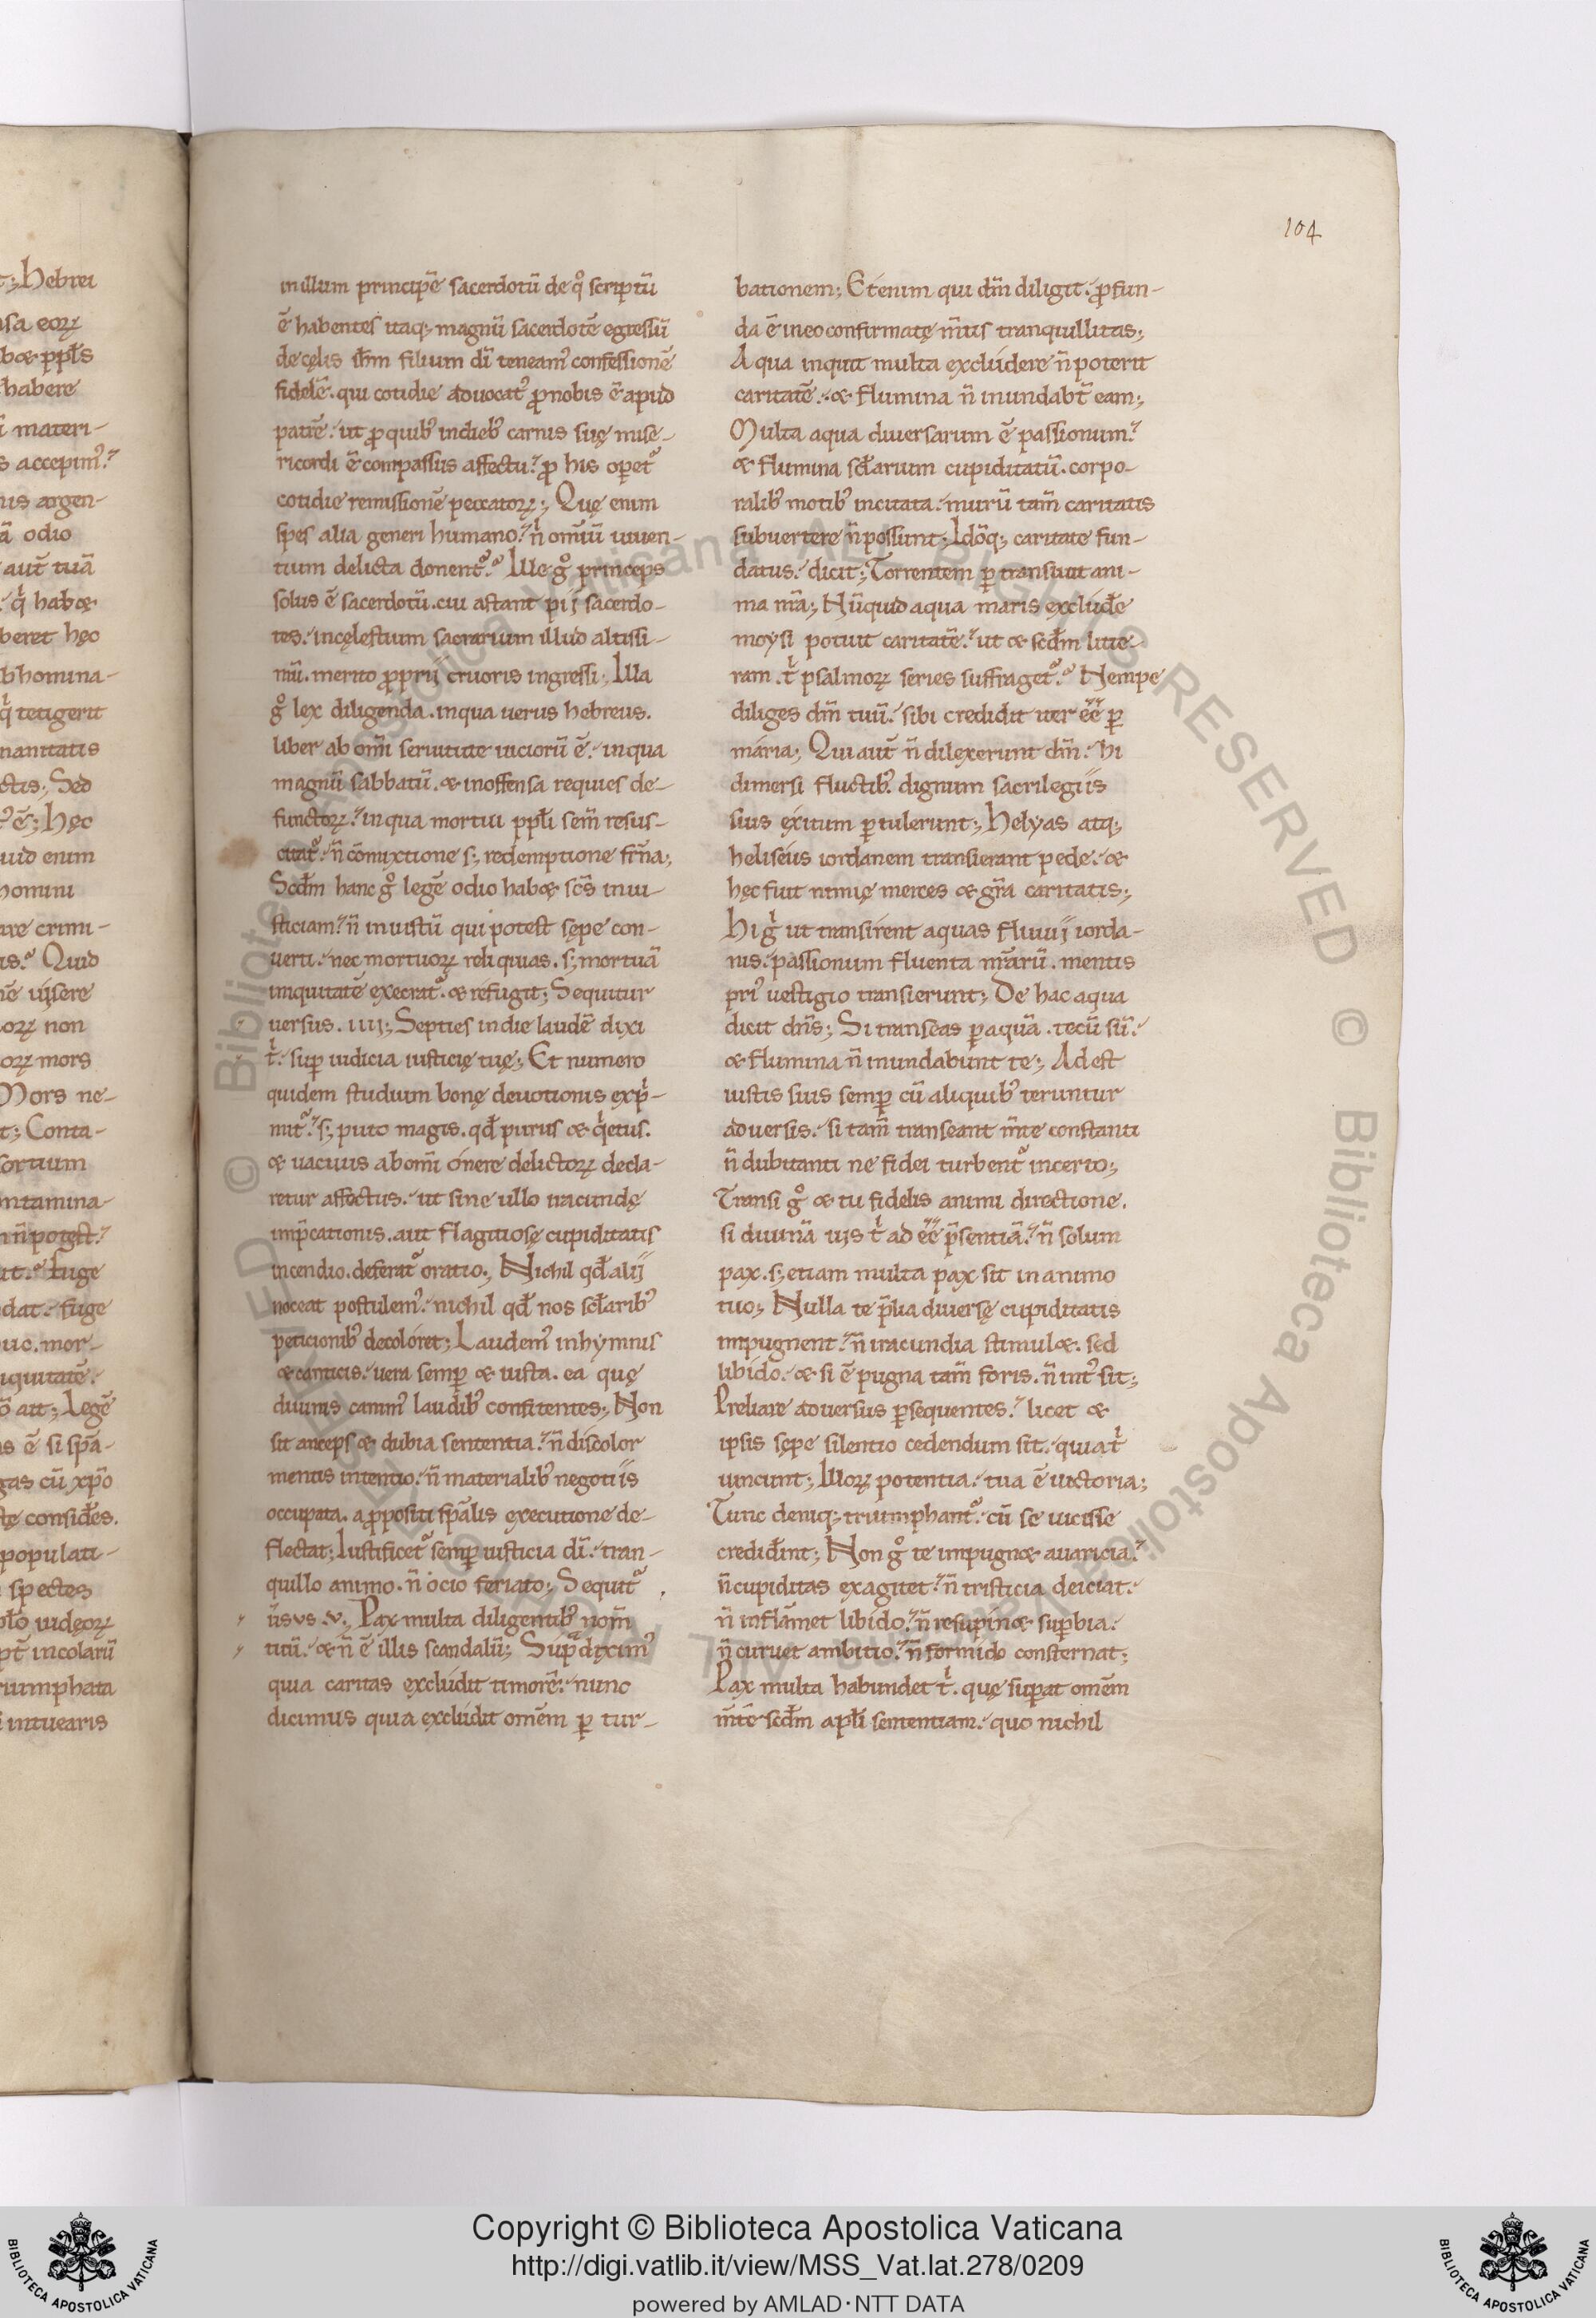 104
in illum principē sacerdotū de qͦ scriptū
ē habentes itaq; magnū sacerdotē egressū
de cęlis ihm̄ filium dī teneamꝰ confessionē
fidelē. qui cotidie aduocatꝰ ꝓ nobis ē apud
patrē. ut ꝓ quibꝰ in diebꝰ carnis suę mise-
ricordi ē compassus affectu. ꝓ his opet᷑
cotidie remissionē peccatoꝝ; Quę enim
spes alia generi humano. nͥ omīū uiuen-
tium delicta donent᷑. Ille gͦ princeps
solus ē sacerdotū. cui astant pij sacerdo-
tes. in cęlestium sacrarium illud altissi-
mū. merito ꝓprij cruoris ingressi; Illa
gͦ lex diligenda. in qua uerus hebreus.
liber ab om̄i seruitute uiciorū ē. in qua
magnū sabbatū. & inoffensa requies de-
functoꝝ. in qua mortui ppłi sem̄ resus-
citat᷑. n̄ cōmixtione s; redemptione fr̄na;
Scđm hanc gͦ legē odio hab& scs̄ iniu-
sticiam. n̄ iniustū qui potest sępe con-
uerti. nec mortuoꝝ reliquias. s; mortuā
iniquitatē execrat᷑. & refugit; Sequitur
uersus. IIII; Septies in die laudē dixi
tͥ. suꝑ iudicia iusticię tuę; Et numero
quidem studium bonę deuotionis expͥ-
mit᷑. s; puto magis. qđ purus & qͥetus.
& uacuus ab om̄i ónere delictoꝝ decla-
retur affectus. ut sine ullo iracundę
imp̄cationis. aut flagitiosę cupiditatis
incendio. deferat᷑ oratio; Nichil qđ alij
noceat postulemꝰ. nichil qđ nos scl̄aribꝰ
peticionibꝰ decolóret; Laudemꝰ in hymnis
& canticis. uera semꝑ & iusta. ea quę
diuinis canimꝰ laudibꝰ confitentes; Non
sit anceps & dubia sententia. n̄ discolor
mentis intentio. n̄ materialibꝰ negotiis
occupata. a ꝓpositi spālis executione de-
flectat; Iustificet᷑ semꝑ iusticia dī. tran-
quillo animo. n̄ ocio feriato; Sequit᷑
ūsus .V; Pax multa diligentibꝰ nom̄
tuū. & n̄ ē illis scandalū; Supͣ diximꝰ
quia caritas exclúdit timorē. nunc
dicimus quia exclúdit omēm ꝑ tur-
bationem; Etenim qui dm̄ diligit. ꝓfun-
da ē in eo confirmatę m̄tis tranquillitas;
Aqua inquit multa exclúdere n̄ poterit
caritatē. & flumina n̄ inundabt̄ eam;
Multa aqua diuersarum ē passionum.
& flumina scl̄arium cupiditatū. corpo-
ralibꝰ motibꝰ incitata. murū tam̄ caritatis
subuertere n̄ possunt; Idōq; caritate fun-
datus. dicit; Torrentem ꝑ transiuit ani-
ma nr̄a; Nūquid aqua maris exclúđe
moysi potuit caritatē. ut & scđm litte-
ram. tͥ psalmoꝝ series suffraget᷑. Nempe
diliges dm̄ tuū. sibi credidit iter ēē ꝑ
mária; Qui aut̄ n̄ dilexerunt dm̄. hi
dimersi fluctibꝰ. dignum sacrilegiis
suis éxitum ꝑtulerunt; Helyas atq;
heliséus iordanem transierant pede. &
hęc fuit nimię merces & gr̄a caritatis;
Hi gͥ ut transirent aquas fluuij iorda-
nis. passionum fluenta nr̄arū. mentis
priꝰ uestigio transierunt; De hac aqua
dicit dn̄s; Si transeas ꝑ aquā. tecū sū.
& flumina n̄ inundabunt te; Adest
iustis suis semꝑ cū aliquibꝰ teruntur
aduersis. si tam̄ transeant m̄te constanti
n̄ dubitanti ne fidei turbent᷑ incerto;
Transi gͦ & tu fidelis animi directione.
si diuinā uis tͥ adēē p̄sentiā. n̄ solum
pax. s; etiam multa pax sit in animo
tuo; Nulla te p̄lia diuersę cupiditatis
impugnent. n̄ iracundia stimul&. sed
libído. & si ē pugna tam̄ foris. n̄ intꝰ sit;
Preliare aduersus ꝑsequentes. licet &
ipsis sępe silentio cedendum sit. quia tͥ
uincunt; Illoꝝ potentia. tua ē uictoria;
Tunc deniq; triumphant᷑. cū se uicisse
crediđint; Non gͦ te impugn& auaricia.
n̄ cupiditas exagitet. n̄ tristicia deiciat.
n̄ inflāmet libído. n̄ resupin& suꝑbia.
n̄ curuet ambitio. n̄ formído consternat;
Pax multa habundet tͥ. quę suꝑat omēm
m̄tē scđm apłi sententiam. quo nichil
Copyright © Biblioteca Apostolica Vaticana
http://digi.vatlib.it/view/MSS_Vat.lat.278/0209
powered by AMLAD·NTT DATA